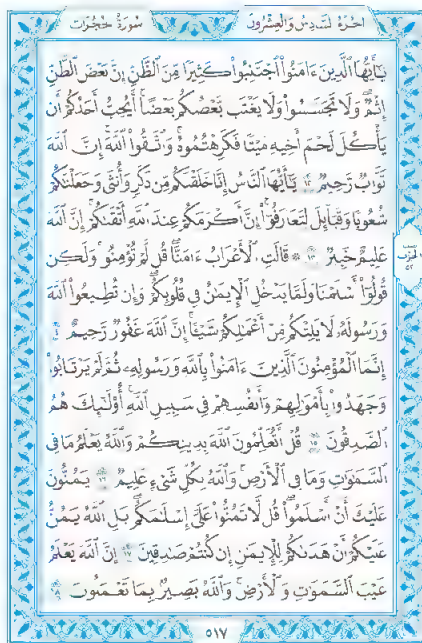 الجزء السادس والعشرون سورة الحجرات
يَٰٓأَيُّهَا ٱلَّذِينَ ءَامَنُوا۟ ٱجْتَنِبُوا۟ كَثِيرًا مِّنَ ٱلظَّنِّ إِنَّ بَعْضَ ٱلظَّنِّ
إِثْمٌ ۖ وَلَا تَجَسَّسُوا۟ وَلَا يَغْتَب بَّعْضُكُم بَعْضًا ۚ أَيُحِبُّ أَحَدُكُمْ أَن
يَأْكُلَ لَحْمَ أَخِيهِ مَيْتًا فَكَرِهْتُمُوهُ ۚ وَٱتَّقُوا۟ ٱللَّهَ ۚ إِنَّ ٱللَّهَ
تَوَّابٌ رَّحِيمٌ ١٢ يَٰٓأَيُّهَا ٱلنَّاسُ إِنَّا خَلَقْنَٰكُم مِّن ذَكَرٍ وَأُنثَىٰ وَجَعَلْنَٰكُمْ
شُعُوبًا وَقَبَآئِلَ لِتَعَارَفُوٓا۟ ۚ إِنَّ أَكْرَمَكُمْ عِندَ ٱللَّهِ أَتْقَىٰكُمْ ۚ إِنَّ ٱللَّهَ
عَلِيمٌ خَبِيرٌ ١٣ ۞ قَالَتِ ٱلْأَعْرَابُ ءَامَنَّا ۖ قُل لَّمْ تُؤْمِنُوا۟ وَلَٰكِن
قُولُوٓا۟ أَسْلَمْنَا وَلَمَّا يَدْخُلِ ٱلْإِيمَٰنُ فِى قُلُوبِكُمْ ۖ وَإِن تُطِيعُوا۟ ٱللَّهَ
وَرَسُولَهُۥ لَا يَلِتْكُم مِّنْ أَعْمَٰلِكُمْ شَيْـًٔا ۚ إِنَّ ٱللَّهَ غَفُورٌ رَّحِيمٌ ١٤
إِنَّمَا ٱلْمُؤْمِنُونَ ٱلَّذِينَ ءَامَنُوا۟ بِٱللَّهِ وَرَسُولِهِۦ ثُمَّ لَمْ يَرْتَابُوا۟
وَجَٰهَدُوا۟ بِأَمْوَٰلِهِمْ وَأَنفُسِهِمْ فِى سَبِيلِ ٱللَّهِ ۚ أُو۟لَٰٓئِكَ هُمُ
ٱلصَّٰدِقُونَ ١٥ قُلْ أَتُعَلِّمُونَ ٱللَّهَ بِدِينِكُمْ وَٱللَّهُ يَعْلَمُ مَا فِى
ٱلسَّمَٰوَٰتِ وَمَا فِى ٱلْأَرْضِ ۚ وَٱللَّهُ بِكُلِّ شَىْءٍ عَلِيمٌ ١٦ يَمُنُّونَ
عَلَيْكَ أَنْ أَسْلَمُوا۟ ۖ قُل لَّا تَمُنُّوا۟ عَلَىَّ إِسْلَٰمَكُم ۖ بَلِ ٱللَّهُ يَمُنُّ
عَلَيْكُمْ أَنْ هَدَىٰكُمْ لِلْإِيمَٰنِ إِن كُنتُمْ صَٰدِقِينَ ١٧ إِنَّ ٱللَّهَ يَعْلَمُ
غَيْبَ ٱلسَّمَٰوَٰتِ وَٱلْأَرْضِ ۚ وَٱللَّهُ بَصِيرٌۢ بِمَا تَعْمَلُونَ ١٨
الحزب
٥٢
٥١٧